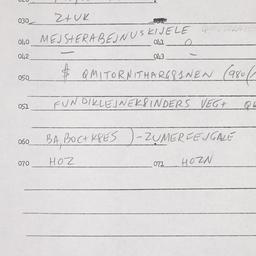 030 Z+UK
040 MEJSTERABEJNUSKIJELE 041
042 — 043 —
050 $ QMITORNITHARGRINEN (980
051 FUNDIKLEJNEKRINDERS VEG+
060 BA, BOC+KRES ) - ZUMERFEJGALE
070 HOZ 071 HOZN